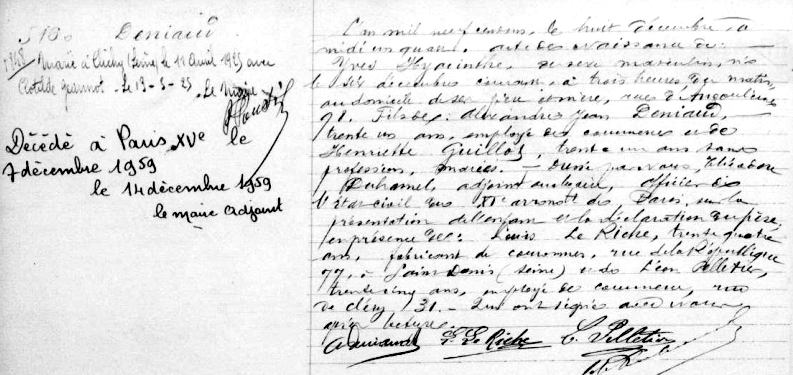 5180 Deniaud
Marié à Clichy (Seine) le 11 Avril 1925 avec
Clotilde Jeannot. Le 13-5-25. Le Maire
Décédé à Paris XVe le
7 décembre 1959
le 14 décembre 1959
le maire adjoint
L'an mil neuf cent un, le huit décembre à
midi un quart, acte de naissance de:
Yves Hyacinthe, de sexe masculin, né
le six décembre courant, à trois heures du matin,
au domicile de ses père et mère, rue d'Angoulême
71. Fils de: Alexandre Jean Deniaud,
trente ans, employé de commerce et de
Henriette Guillot, trente un ans, sans
profession, mariés. — Dressé par Nous,
Duhamel, adjoint au Maire, officier de
l'état civil du XIe arrondt de Paris, sur la
présentation de l'enfant et la déclaration du père,
en présence de: Louis Le Riche, trente quatre
ans, fabricant de couronnes, rue de la République
77, à Saint Denis (Seine) et de Léon Pelletier,
trente cinq ans, employé de commerce, rue
de Cléry 31. — Qui ont signé avec Nous
après lecture.
A Deniaud L. Le Riche L. Pelletier